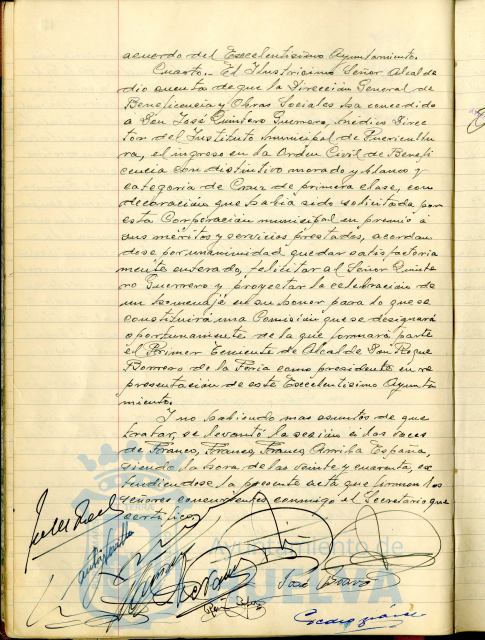 acuerdo del Excelentísimo Ayuntamiento.
Cuarto.- El Ilustrísimo Señor Alcalde
dio cuenta de que la Dirección General de
Beneficencia y Obras Sociales ha concedido
a Don José Quintero Guerrero, médico Direc
tor del Instituto municipal de Puericultu
ra, el ingreso en la Orden Civil de Benefi
cencia con distintivo morado y blanco y
categoría de Cruz de primera clase, con
decoración que había sido solicitada por
esta Corporación municipal en premio a
sus méritos y servicios prestados, acordan
dose por unanimidad quedar satisfactoria
mente enterado, felicitar al Señor Quinte
ro Guerrero y proyectar la celebración de
un homenaje en su honor para lo que se
constituirá una Comisión que se designará
oportunamente de la que formará parte
el Primer Teniente de Alcalde Don Roque
Borrero de la Feria como presidente en re
presentación de este Excelentísimo Ayunta
miento.
Y no habiendo mas asuntos de que
tratar, se levantó la sesión a las voces
de Franco, Franco, Franco, Arriba España,
siendo la hora de las veinte y cuarenta, ex
tendiendose la presente acta que firman los
señores concurrentes conmigo el Secretario que
certifico.
Ayuntamiento de
HUELVA
José